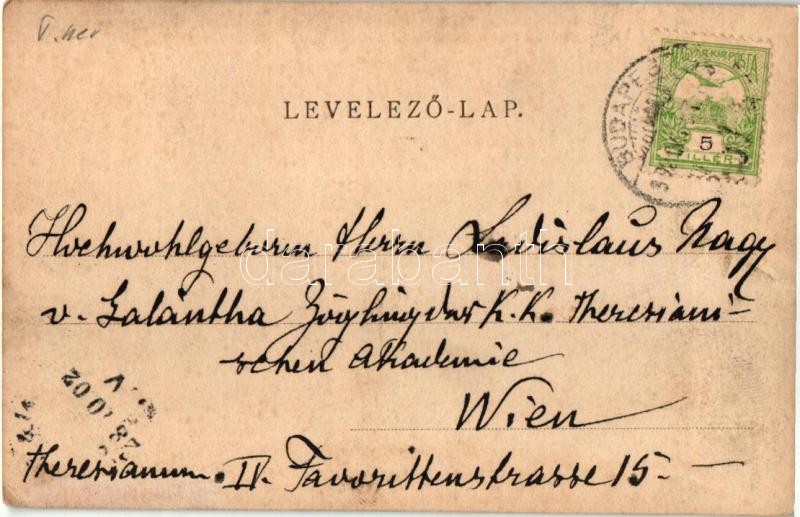 V. ker
LEVELEZŐ-LAP.
MAGYAR KIR. POSTA
5
FILLÉR
BUDAPEST
Hochwohlgeborn Herrn Ladislaus Nagy
v. Galántha Zögling der K. K. Theresiani-
schen Akademie
Wien
Theresianum. IV. Favorittenstrasse 15. —
darabanth